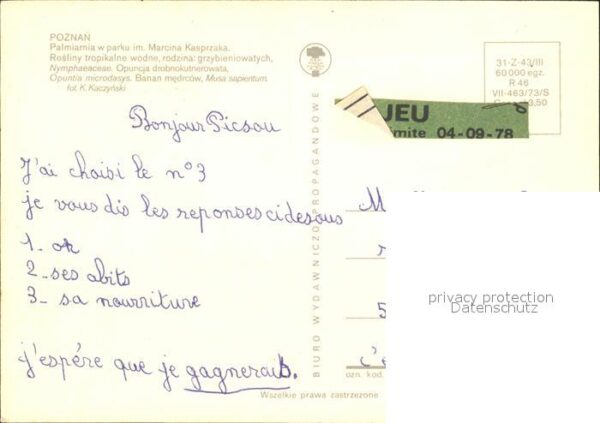 POZNAŃ
Palmiarnia w parku im. Marcina Kasprzaka.
Rośliny tropikalne wodne, rodzina: grzybieniowatych,
Nymphaeaceae. Opuncja drobnokutnerowata,
Opuntia microdasys. Banan mędrców, Musa sapientum
fot. K. Kaczyński
31-Z-43/III
60 000 egz.
R 46
VII-463/73/S
3,50
JEU
mite 04-09-78
Bonjour Picsou
J'ai choisi le n°3
je vous dis les reponses cidesous
1_ ok
2_ ses abits
3_ sa nourriture
j'espére que je gagnerais.
BIURO WYDAWNICZO-PROPAGANDOWE
M
5
c'e
ozn. kod.
privacy protection
Datenschutz
Wszelkie prawa zastrzeżone